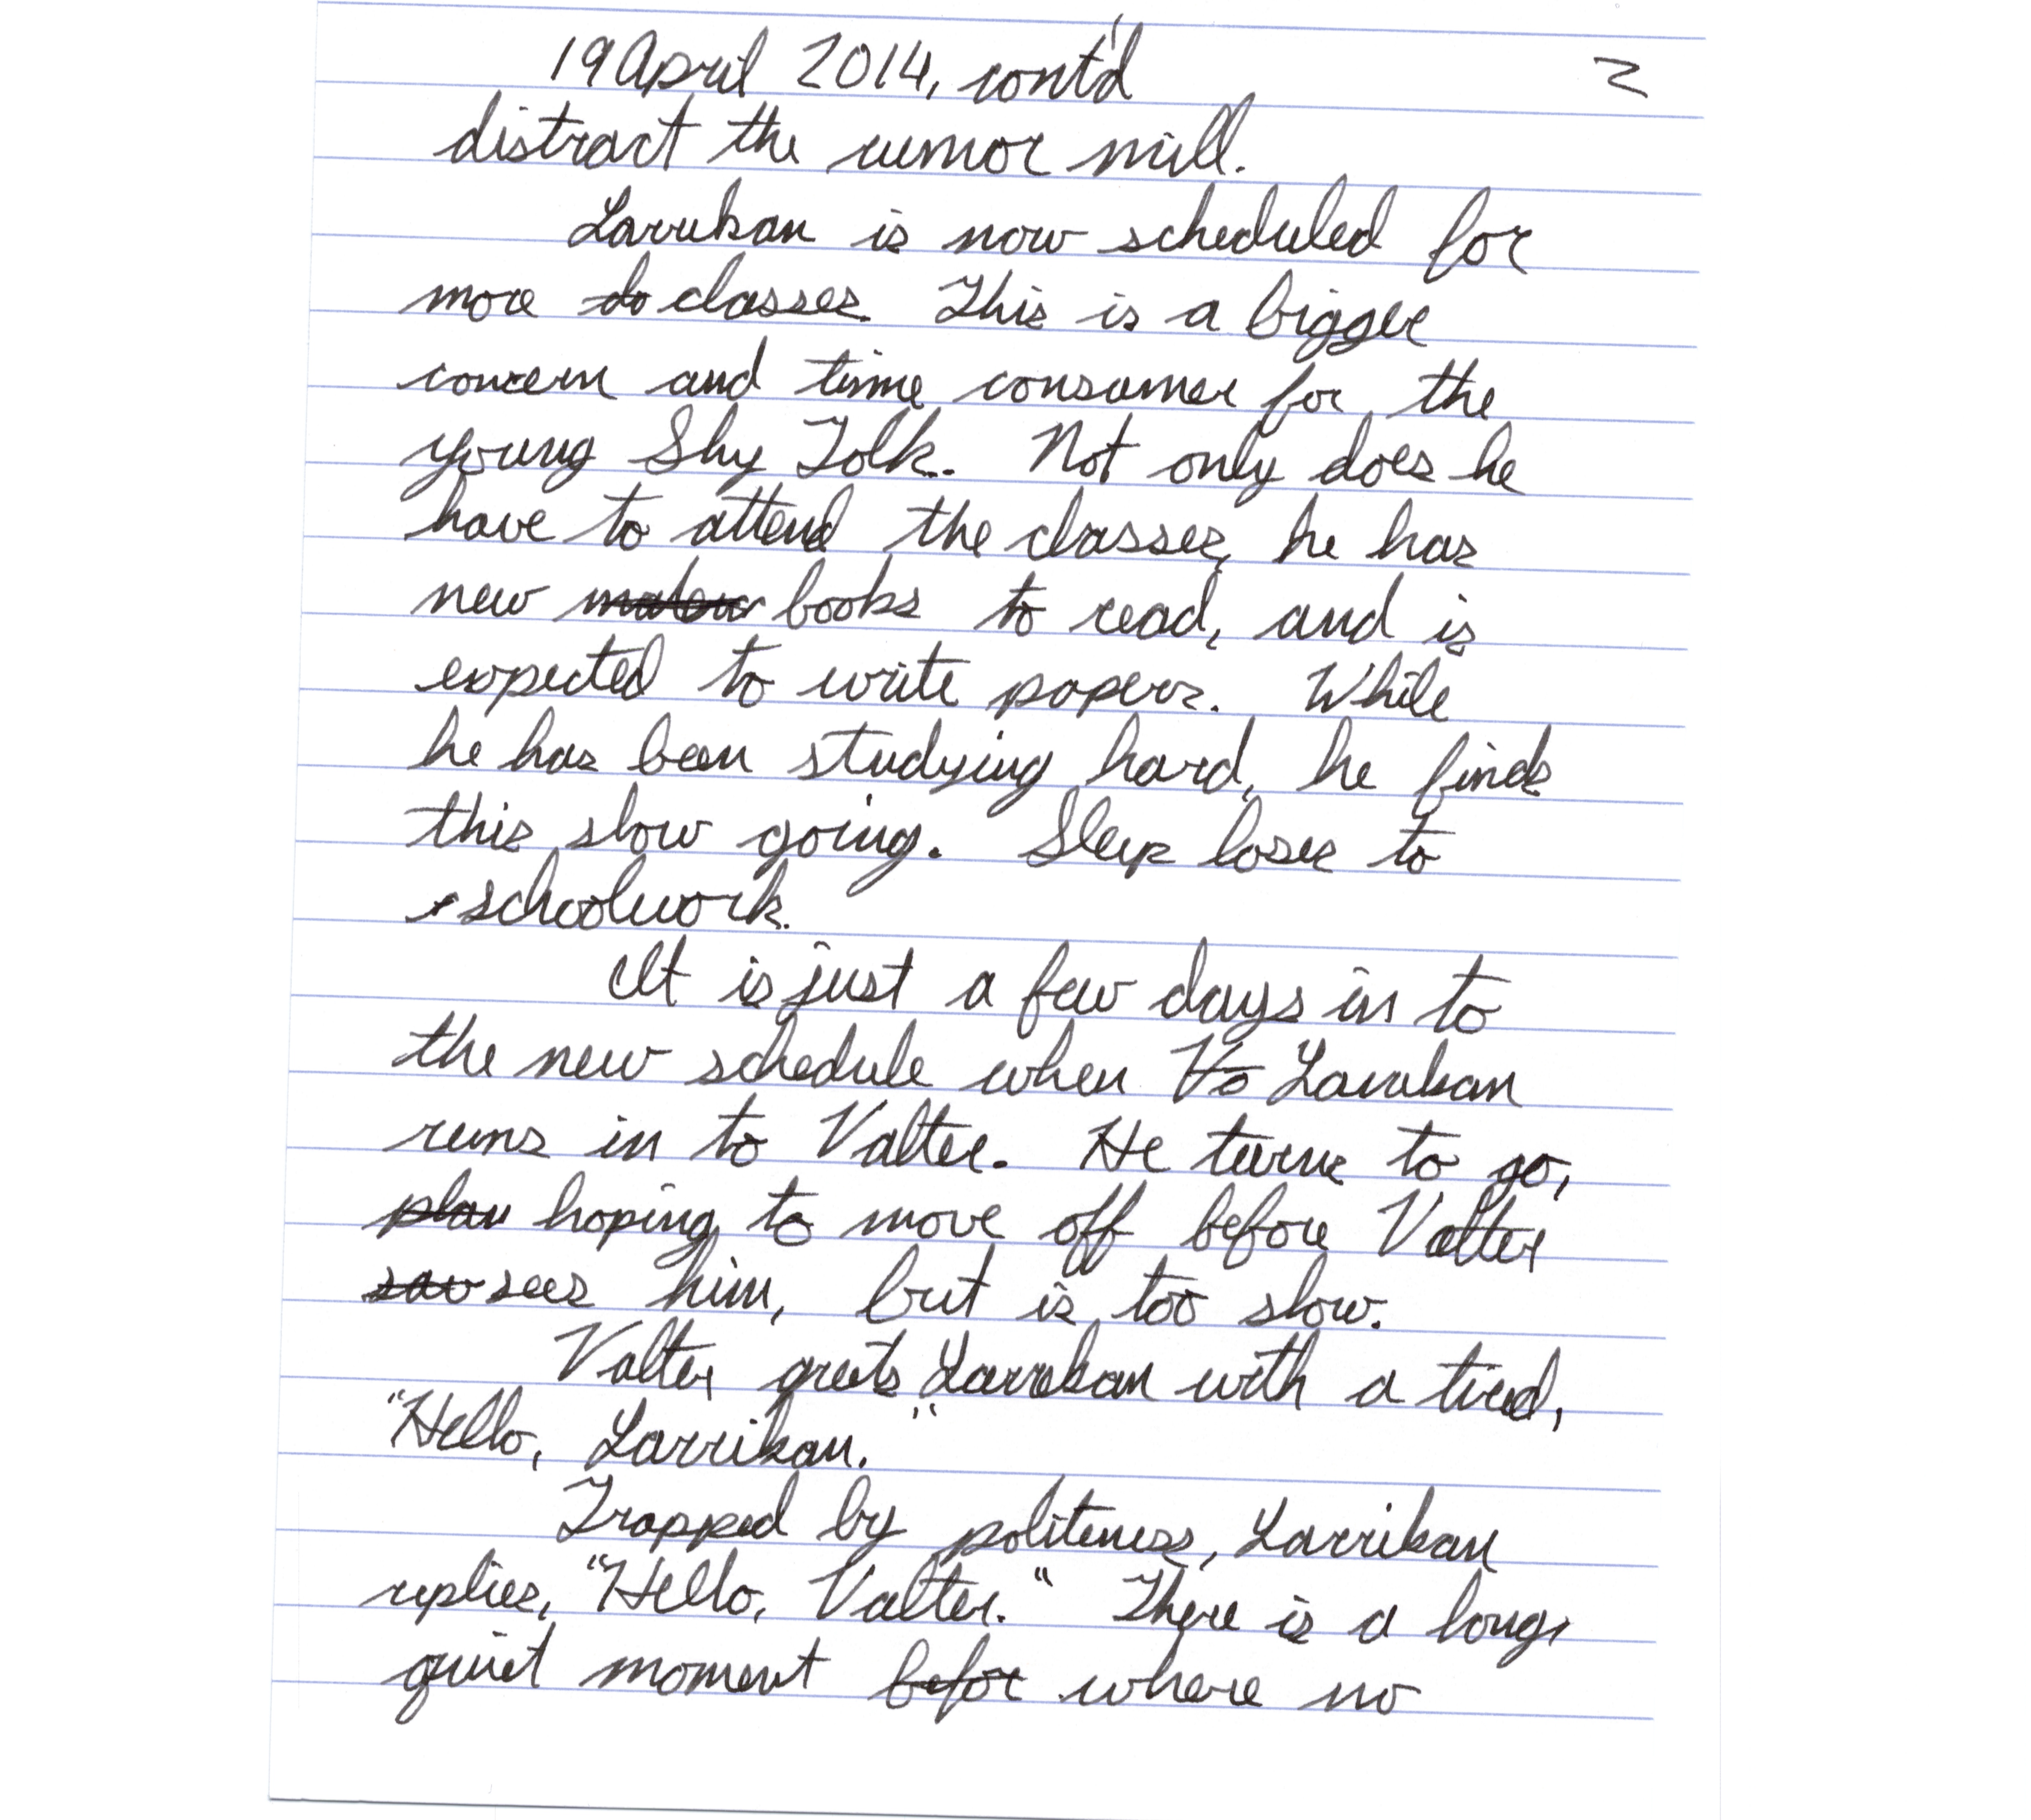 19 April 2014, cont'd 2
distract the rumor mill.
Larrikan is now scheduled for
more do classes. This is a bigger
concern and time consumer for the
young Shy Folk. Not only does he
have to attend the classes, he has
new books to read, and is
expected to write papers. While
he has been studying hard, he finds
this slow going. Sleep loses to
schoolwork.
It is just a few days in to
the new schedule when Va Larrikan
runs in to Valter. He turns to go,
plan hoping to move off before Valter
saw sees him, but is too slow.
Valter greets Larrikan with a tired,
"Hello, Larrikan."
Trapped by politeness, Larrikan
replies, "Hello, Valter." There is a long,
quiet moment befor where no